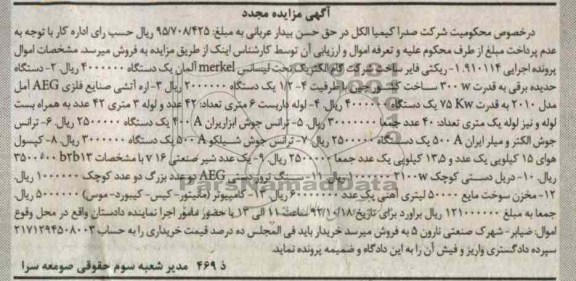 آگهی مزایده مجدد
درخصوص محکومیت شرکت صدرا کیمیا الکل در حق حسن بیدار عربانی به مبلغ: ۹۵/۷۰۸/۴۲۵ ریال حسب رای اداره کار با توجه به
عدم پرداخت مبلغ از طرف محکوم علیه و تعرفه اموال و ارزیابی آن توسط کارشناس اینک از طریق مزایده به فروش میرسد. مشخصات اموال
پرونده اجرایی ۱.۹۱۰۱۱۴- رکتی فایر ساخت شرکت گام الکتریک تحت لیسانس merkel آلمان یک دستگاه ۴۰۰۰۰۰۰۰ ریال ۲- دستگاه
حدیده برقی به قدرت ۳۰۰ w ساخت کشور چین با ظرفیت ۴- ۱/۲ یک دستگاه ۲۰۰۰۰۰۰ ریال ۳- اره آتشی صنایع فلزی AEG آمل
مدل ۲۰۱۰ به قدرت ۷۵ Kw یک دستگاه ۴۰۰۰۰۰۰ ریال. ۴- لوله داربست ۶ متری تعداد: ۴۲ عدد و لوله ۳ متری ۴۲ عدد به همراه بست
لوله و نیز لوله یک متری تعداد: ۴۰ عدد جمعا ۳۰۰۰۰۰۰۰ ریال. ۵- ترانس جوش ابزاریران ۴۰۰ A یک دستگاه ۲۵۰۰۰۰۰ ریال. ۶- ترانس
جوش الکتر و میلر ایران ۵۰۰ A یک دستگاه ۲۵۰۰۰۰۰ ریال ۷- ترانس جوش شیلکو ۵۰۰ A یک دستگاه ۳۰۰۰۰۰۰ ریال. ۸- کپسول
هوای ۱۵ کیلویی یک عدد و ۱۳٫۵ کیلویی یک عدد جمعا ۲۵۰۰۰۰۰ ریال. ۹- یک عدد شیر صنعتی ۱۶ v با مشخصات brb۱۳ ۳۵۰۰۰۰۰
ریال. ۱۰- دریل دستی کوچک ۲۱۰۰w ۱۰۰۰۰۰۰ ریال. ۱۱- سنگ فرز دستی AEG دو عدد بزرگ دو عدد کوچک ۱۰۰۰۰۰۰ ریال
۱۲- مخزن سوخت مایع ۵۰۰۰۰ لیتری آهنی یک عدد ریال. ۱۳- کامپیوتر (مانیتور- کیس- کیبورد- موس) ۵۰۰۰۰۰۰ ریال.
جمعا به مبلغ ۱۲۱۰۰۰۰۰۰ ریال برآورد برای تاریخ: ۹۲/۱۰/۱۸ ساعت ۱۱ الی ۱۳ با حضور مامور اجرا نماینده دادستان واقع در محل وقوع
اموال: ضیابر- شهرک صنعتی نارون ۵ به فروش میرسد خریدار باید فی المجلس ده درصد قیمت خریداری را به حساب ۲۱۷۱۲۹۴۵۰۸۰۰۳
سپرده دادگستری واریز و فیش آن را به این دادگاه و ضمیمه پرونده نماید.
ذ ۴۶۹ مدیر شعبه سوم حقوقی صومعه سرا
ParsNamadData